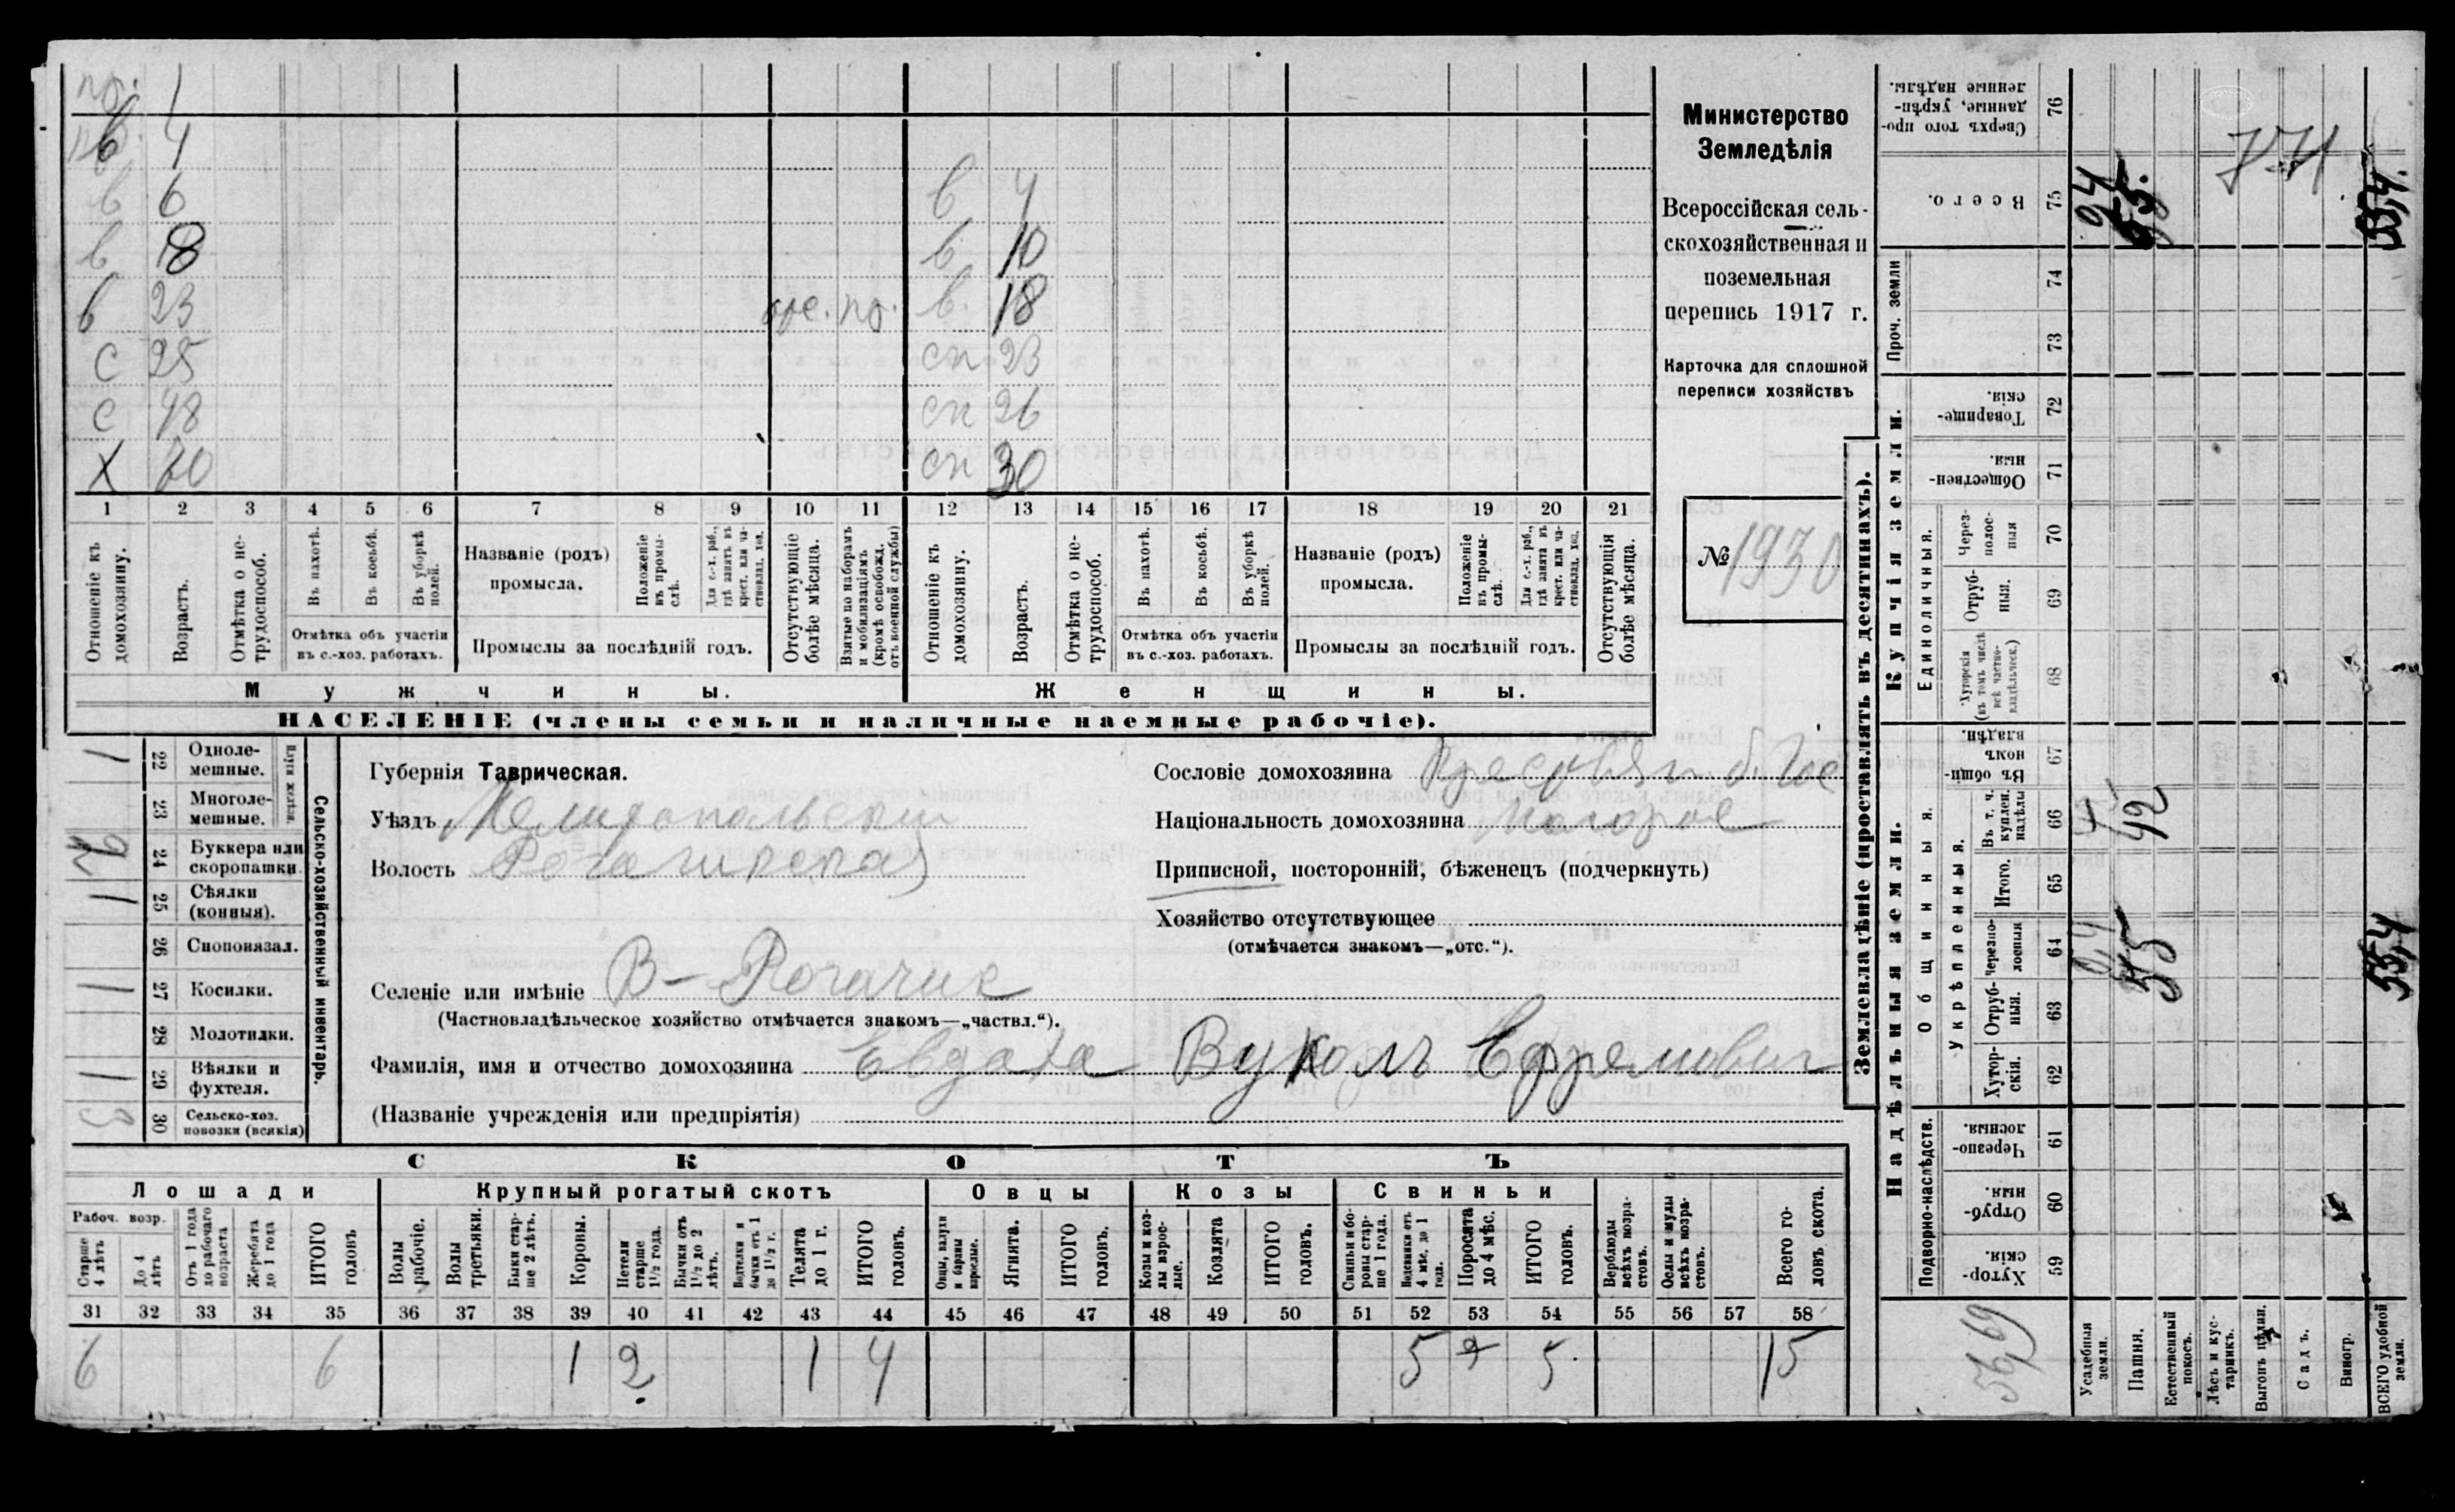 пр. 1
4
в 6 в 4
в 18 в. 10
в 23 пр. в. 18
С 25 сн 23
С 48 сн 26
Х сн 30
1 2 3 4 5 6 7 8 9 10 11 12 13 14 15 16 17 18 19 20 21
Отношеніе къ домохозяину.
Возрастъ.
Отмѣтка о нетрудоспособ.
Въ пахотѣ.
Въ косьбѣ.
Въ уборкѣ полей.
Отмѣтка объ участіи въ с.-хоз. работахъ.
Названіе (родъ) промысла.
Положеніе въ промыслѣ.
Для с.-х. раб., гдѣ занятъ въ крест. или частновлад. хоз.
Промыслы за послѣдній годъ.
Отсутствующіе болѣе мѣсяца.
Взятые по наборамъ и мобилизаціямъ (кромѣ освобожд. отъ военной службы)
Отношеніе къ домохозяину.
Возрастъ.
Отмѣтка о нетрудоспособ.
Въ пахотѣ.
Въ косьбѣ.
Въ уборкѣ полей.
Отмѣтка объ участіи въ с.-хоз. работахъ.
Названіе (родъ) промысла.
Положеніе въ промыслѣ.
Для с.-х. раб., гдѣ занята въ крест. или частновлад. хоз.
Промыслы за послѣдній годъ.
Отсутствующія болѣе мѣсяца.
Мужчины.
Женщины.
НАСЕЛЕНІЕ (члены семьи и наличные наемные рабочіе).
Министерство
Земледѣлія
Всероссійская сель-
скохозяйственная и
поземельная
перепись 1917 г.
Карточка для сплошной
переписи хозяйствъ
№ 1930
Сельско-хозяйственный инвентарь.
22 Одноле-мешные. 1
23 Многоле-мешные.
24 Буккера или скоропашки
25 Сѣялки (конныя). 1
26 Сноповязал.
27 Косилки. 1
28 Молотилки.
29 Вѣялки и фухтеля. 1
30 Сельско-хоз. повозки (всякія) 3
Губернія Таврическая.
Уѣздъ Мелитопольскій
Волость Рогачикская
Селеніе или имѣніе В-Рогачик
(Частновладѣльческое хозяйство отмѣчается знакомъ—„частвл.“).
Фамилія, имя и отчество домохозяина Евдаха Вуколъ Ефремович
(Названіе учрежденія или предпріятія)
Сословіе домохозяина
Національность домохозяина Малорос
Приписной, посторонній, бѣженецъ (подчеркнуть)
Хозяйство отсутствующее
(отмѣчается знакомъ—„отс.“).
СКОТЪ
Лошади
Крупный рогатый скотъ
Овцы
Козы
Свиньи
Рабоч. возр.
Старше 4 лѣтъ
До 4 лѣтъ
Отъ 1 года до рабочаго возраста
Жеребята до 1 года
ИТОГО головъ
Волы рабочіе.
Волы третьяки.
Быки старше 2 лѣтъ.
Коровы.
Нетели старше 1½ года.
Бычки отъ 1½ до 2 лѣтъ.
Нетелки и бычки отъ 1 до 1½ г.
Телята до 1 г.
ИТОГО головъ.
Овцы, валухи и бараны взрослые.
Ягнята.
ИТОГО головъ.
Козы и козлы взрослые.
Козлята
ИТОГО головъ.
Свиньи и боровы старше 1 года.
Подсвинки отъ 4 мѣс. до 1 года.
Поросята до 4 мѣс.
ИТОГО головъ.
Верблюды всѣхъ возрастовъ.
Ослы и мулы всѣхъ возрастовъ.
Всего головъ скота.
31 32 33 34 35 36 37 38 39 40 41 42 43 44 45 46 47 48 49 50 51 52 53 54 55 56 57 58
6 6 1 2 1 4 5 5 15
Землевладѣніе (проставлять въ десятинахъ).
Надѣльныя земли.
Купчія земли.
Проч. земли
Подворно-наслѣдств.
Общинныя.
Укрѣпленныя.
Единоличныя.
Сверхъ того проданные, укрѣпленные надѣлы. 76
Всего. 75
74
73
Товарищескія. 72
Общественныя. 71
Черезполосныя 70
Отрубныя. 69
Хуторскія (въ томъ числѣ всѣ частновладѣльческ.) 68
Въ общномъ владѣн. 67
Въ т. ч. куплен. надѣлы 66
Итого. 65
Черезполосныя 64
Отрубныя. 63
Хуторскія. 62
Черезполосныя. 61
Отрубныя. 60
Хуторскія. 59
Усадебныя земли.
Пашня.
Естественный покосъ.
Лѣсъ и кустарникъ.
Выгонъ цѣлин.
Садъ.
Виногр.
ВСЕГО удобной земли.
42
55,4
55,4.